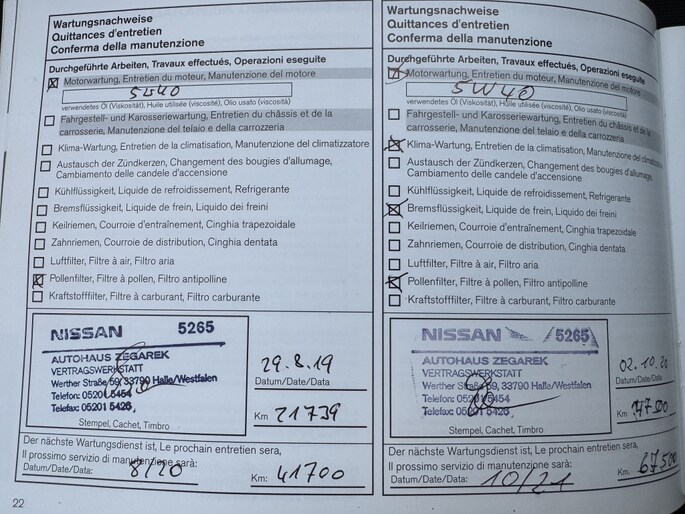 Wartungsnachweise
Quittances d'entretien
Conferma della manutenzione
Durchgeführte Arbeiten, Travaux effectués, Operazioni eseguite
Motorwartung, Entretien du moteur, Manutenzione del motore
5W40
verwendetes Öl (Viskosität), Huile utilisée (viscosité), Olio usato (viscosità)
Fahrgestell- und Karosseriewartung, Entretien du châssis et de la
carrosserie, Manutenzione del telaio e della carrozzeria
Klima-Wartung, Entretien de la climatisation, Manutenzione del climatizzatore
Austausch der Zündkerzen, Changement des bougies d'allumage,
Cambiamento delle candele d'accensione
Kühlflüssigkeit, Liquide de refroidissement, Refrigerante
Bremsflüssigkeit, Liquide de frein, Liquido dei freini
Keilriemen, Courroie d'entraînement, Cinghia trapezoidale
Zahnriemen, Courroie de distribution, Cinghia dentata
Luftfilter, Filtre à air, Filtro aria
Pollenfilter, Filtre à pollen, Filtro antipolline
Kraftstofffilter, Filtre à carburant, Filtro carburante
NISSAN 5265
AUTOHAUS ZEGAREK
VERTRAGSWERKSTATT
Werther Straße 59, 33790 Halle/Westfalen
Telefon: 05201 5454
Telefax: 05201 5426
Stempel, Cachet, Timbro
29.8.19
Datum/Date/Data
Km 21739
Der nächste Wartungsdienst ist, Le prochain entretien sera,
Il prossimo servizio di manutenzione sarà:
Datum/Date/Data: 8/20 Km: 41700
22
Wartungsnachweise
Quittances d'entretien
Conferma della manutenzione
Durchgeführte Arbeiten, Travaux effectués, Operazioni eseguite
Motorwartung, Entretien du moteur, Manutenzione del motore
5W40
verwendetes Öl (Viskosität), Huile utilisée (viscosité), Olio usato (viscosità)
Fahrgestell- und Karosseriewartung, Entretien du châssis et de la
carrosserie, Manutenzione del telaio e della carrozzeria
Klima-Wartung, Entretien de la climatisation, Manutenzione del climatizzatore
Austausch der Zündkerzen, Changement des bougies d'allumage,
Cambiamento delle candele d'accensione
Kühlflüssigkeit, Liquide de refroidissement, Refrigerante
Bremsflüssigkeit, Liquide de frein, Liquido dei freini
Keilriemen, Courroie d'entraînement, Cinghia trapezoidale
Zahnriemen, Courroie de distribution, Cinghia dentata
Luftfilter, Filtre à air, Filtro aria
Pollenfilter, Filtre à pollen, Filtro antipolline
Kraftstofffilter, Filtre à carburant, Filtro carburante
NISSAN 5265
AUTOHAUS ZEGAREK
VERTRAGSWERKSTATT
Werther Straße 59, 33790 Halle/Westfalen
Telefon: 05201 5454
Telefax: 05201 5426
Stempel, Cachet, Timbro
02.10.20
Datum/Date/Data
Km
Der nächste Wartungsdienst ist, Le prochain entretien sera,
Il prossimo servizio di manutenzione sarà:
Datum/Date/Data: 10/21 Km: 67500